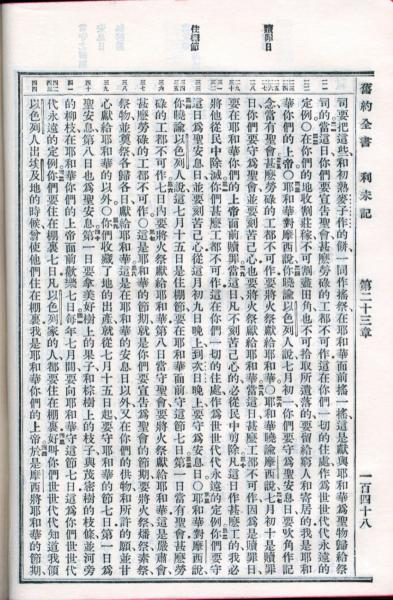 舊約全書 利未記 第二十三章 一百四十八
贖罪日
住棚節
司要把這些和初熟麥子作的餅一同作搖祭在耶和華面前搖一搖這是獻與耶和華爲聖物歸給祭
司的當這日你們要宣告聖會甚麼勞碌的工都不可作這在你們一切的住處作爲世世代代永遠的
定例○在你們的地收割莊稼不可割盡田角也不可拾取所遺落的要留給窮人和寄居的我是耶和
華你們的上帝○耶和華對摩西說你曉諭以色列人說七月初一你們要守爲聖安息日要吹角作記
念當有聖會甚麼勞碌的工都不可作要將火祭獻給耶和華○耶和華曉諭摩西說七月初十是贖罪
日你們要守爲聖會並要刻苦己心也要將火祭獻給耶和華當這日甚麼工都不可作因爲是贖罪日
要在耶和華你們的上帝面前贖罪當這日凡不刻苦己心的必從民中剪除凡這日作甚麼工的我必
將他從民中除滅你們甚麼工都不可作這在你們一切的住處作爲世世代代永遠的定例你們要守
這日爲聖安息日並要刻苦己心從這月初九日晚上到次日晚上要守爲安息日○耶和華對摩西說
你曉諭以色列人說這七月十五日是住棚節要在耶和華面前守這節七日第一日當有聖會甚麼勞
碌的工都不可作七日內要將火祭獻給耶和華第八日當守聖會要將火祭獻給耶和華這是嚴肅會
甚麼勞碌的工都不可作○這是耶和華的節期就是你們要宣告爲聖會的節期要將火祭燔祭素祭
祭物並奠祭各歸各日獻給耶和華這是在耶和華的安息日以外又在你們的供物和所許的願並甘
心獻給耶和華的以外○你們收藏了地的出產就從七月十五日起要守耶和華的節七日第一日爲
聖安息第八日也爲聖安息第一日要拿美好樹上的果子和棕樹上的枝子與茂密樹的枝條並河旁
的柳枝在耶和華你們的上帝面前歡樂七日每年七月間要向耶和華守這節七日這爲你們世世代
代永遠的定例你們要住在棚裏七日凡以色列家的人都要住在棚裏好叫你們世世代代知道我領
以色列人出埃及地的時候曾使他們住在棚裏我是耶和華你們的上帝於是摩西將耶和華的節期